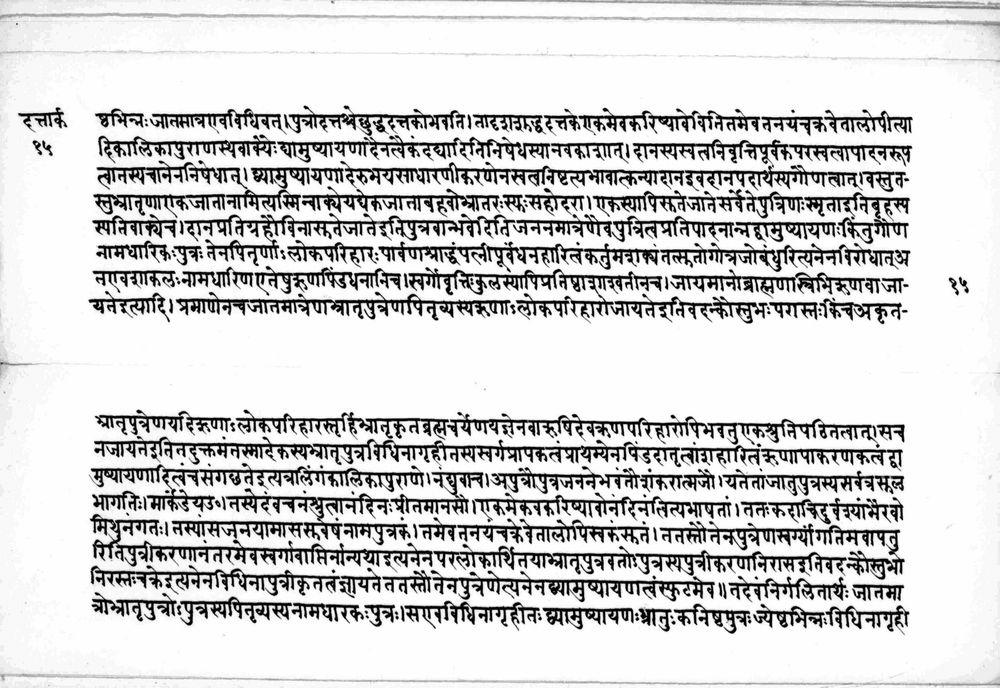 दत्तार्क
१५
ष्ठभिन्नः जातमात्रएवविधिवत्।पुत्रोदत्तश्चेच्छुद्धदत्तकोभवति।तादृशशुद्धदत्तकेएकमेवकरिष्यावेवितितमेवतनयंचक्रेवेतालोपीत्या
दिकालिकापुराणस्थवाक्यैःद्व्यामुष्यायणादेनत्वेकंदद्यादितिनिषेधस्यानवकाशात्।दानस्यस्वत्वनिवृत्तिपूर्वकपरस्वत्वापादनरूप
त्वात्तस्यचानेननिषेधात्।द्व्यामुष्यायणादेरुभयसाधारणीकरणेनस्वत्वनिवृत्त्यभावात्कन्यादानइवदानपदार्थस्यगौणत्वात्।वस्तुत-
स्तुभ्रातृणाएकजातानामित्यस्मिन्वाक्येयद्येकजाताबहवोभ्रातरःस्युःसहोदराः।एकस्यापिसुतेजातेसर्वेतेपुत्रिणःस्मृताइतिबृहस्प
स्पतिवाक्येच।दानप्रतिग्रहौविनासुतेजातेइतिपुत्रवान्भवेदितिजननमात्रेणैवपुत्रित्वप्रतिपादनान्नद्व्यामुष्यायणःकिंतुगौण
नामधारिकःपुत्रःतेनपितॄणांऽलोकपरिहारःपार्वणश्राद्धंपत्नीपूर्वेधनहारित्वंकर्तुमशक्यंतत्सुतोगोत्रजोबंधुरित्यनेनविरोधात्अ
तएवशाकलःनामधारिणएतेषुऋणपिंडधनानिच।स्वर्गोवृत्तिःकुलस्यापिप्रतिष्ठाशाश्वतीनच।जायमानोब्राह्मणस्त्रिभिर्ऋणवाजा-
१५
यतेइत्यादि।प्रमाणेनचजातमात्रेणभ्रातृपुत्रेणपितृव्यस्यऋणाऽलोकपरिहारोजायतेइतिवदन्कौस्तुभःपरास्तःकिंचअकृत-
भ्रातृपुत्रेणयदिऋणाऽलोकपरिहारस्तर्हिभ्रातृकृतब्रह्मचर्येणयज्ञेनवाऋषिदेवऋणपरिहारोपिभवतुएकश्रुतिपठितत्वात्।सच
नजायतेइतितदुक्तमंतस्मादेकस्यभ्रातृपुत्रविधिनागृहीतस्यस्वर्गप्रापकत्वप्राथम्येनपिंडदातृत्वांशहारित्वंऋणापाकरणकत्वंद्व्या
मुष्यायणादित्वंचसंगच्छतेइत्यत्रलिंगंकालिकापुराणे।नंद्युवाच।अपुत्रौपुत्रजननेभवंतौशंकरात्मजौ।यतेतांजातुपुत्रस्यसर्वत्रसुलभ
भागतिः।मार्कंडेयउ०।तस्येदंवचनंश्रुत्वानंदिनःप्रीतमानसौ।एकमेवकरिष्यावोनंदिनंत्वित्यभाषतां।ततःकदाचिदुर्वश्यांभैरवो
मिथुनंगतः।तस्यांसजनयामाससुवेषंनामपुत्रकं।तमेवतनयंचक्रेवेतालोपिस्वकंसुतं।ततस्तौतेनपुत्रेणस्वर्ग्यांगतिमवापतु
रितिपुत्रीकरणानंतरमेवस्वर्गावाप्तिर्नान्यथाइत्यनेनपरलोकार्थितयाभ्रातृपुत्रवतोऽपुत्रस्यपुत्रीकरणनिरासइतिवदन्कौस्तुभो
निरस्तःचक्रेइत्यनेनविधिनापुत्रीकृतत्वंज्ञायतेततस्तौतेनपुत्रेणेत्यनेनद्व्यामुष्यायणत्वंस्फुटमेव॥तदेवंनिर्गलितार्थःजातमा
त्रोभ्रातृपुत्रोऽपुत्रस्यपितृव्यस्यनामधारकःपुत्रः।सएवविधिनागृहीतःद्व्यामुष्यायणःभ्रातुःकनिष्ठपुत्रःज्येष्ठभिन्नःविधिनागृही